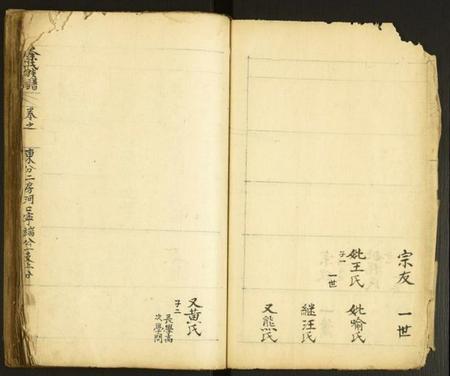 宗友
一世
妣王氏
子一
一世
妣喻氏
継汪氏
又熊氏
又黄氏
子二
長學高
次學問
氏族譜
卷之
東分二房河口寧